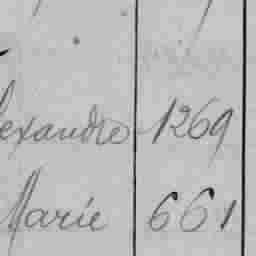 exandre 1269
Marie 661